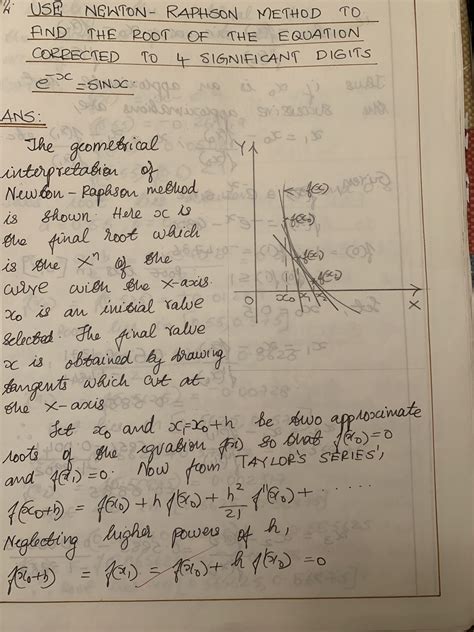 4. USE NEWTON-RAPHSON METHOD TO
FIND THE ROOT OF THE EQUATION
CORRECTED TO 4 SIGNIFICANT DIGITS
e^-x = sinx.
ANS:
The geometrical
interpretation of
Newton-Raphson method
is shown. Here x is
the final root which
is the X^n of the
curve with the X-axis.
x0 is an initial value
selected. The final value
x is obtained by drawing
tangents which cut at
the X-axis
Y
f(x)
f(x0)
f(x1)
f(x2)
O x0 x1 x2 X
Let x0 and x1=x0+h be two approximate
roots of the equation f(x) so that f(x0)=0
and f(x1)=0. Now from TAYLOR'S SERIES,
f(x0+h) = f(x0) + h f'(x0) + h²/2! f''(x0) + ......
Neglecting higher powers of h,
f(x0+h) = f(x1) = f(x0) + h f'(x0) = 0